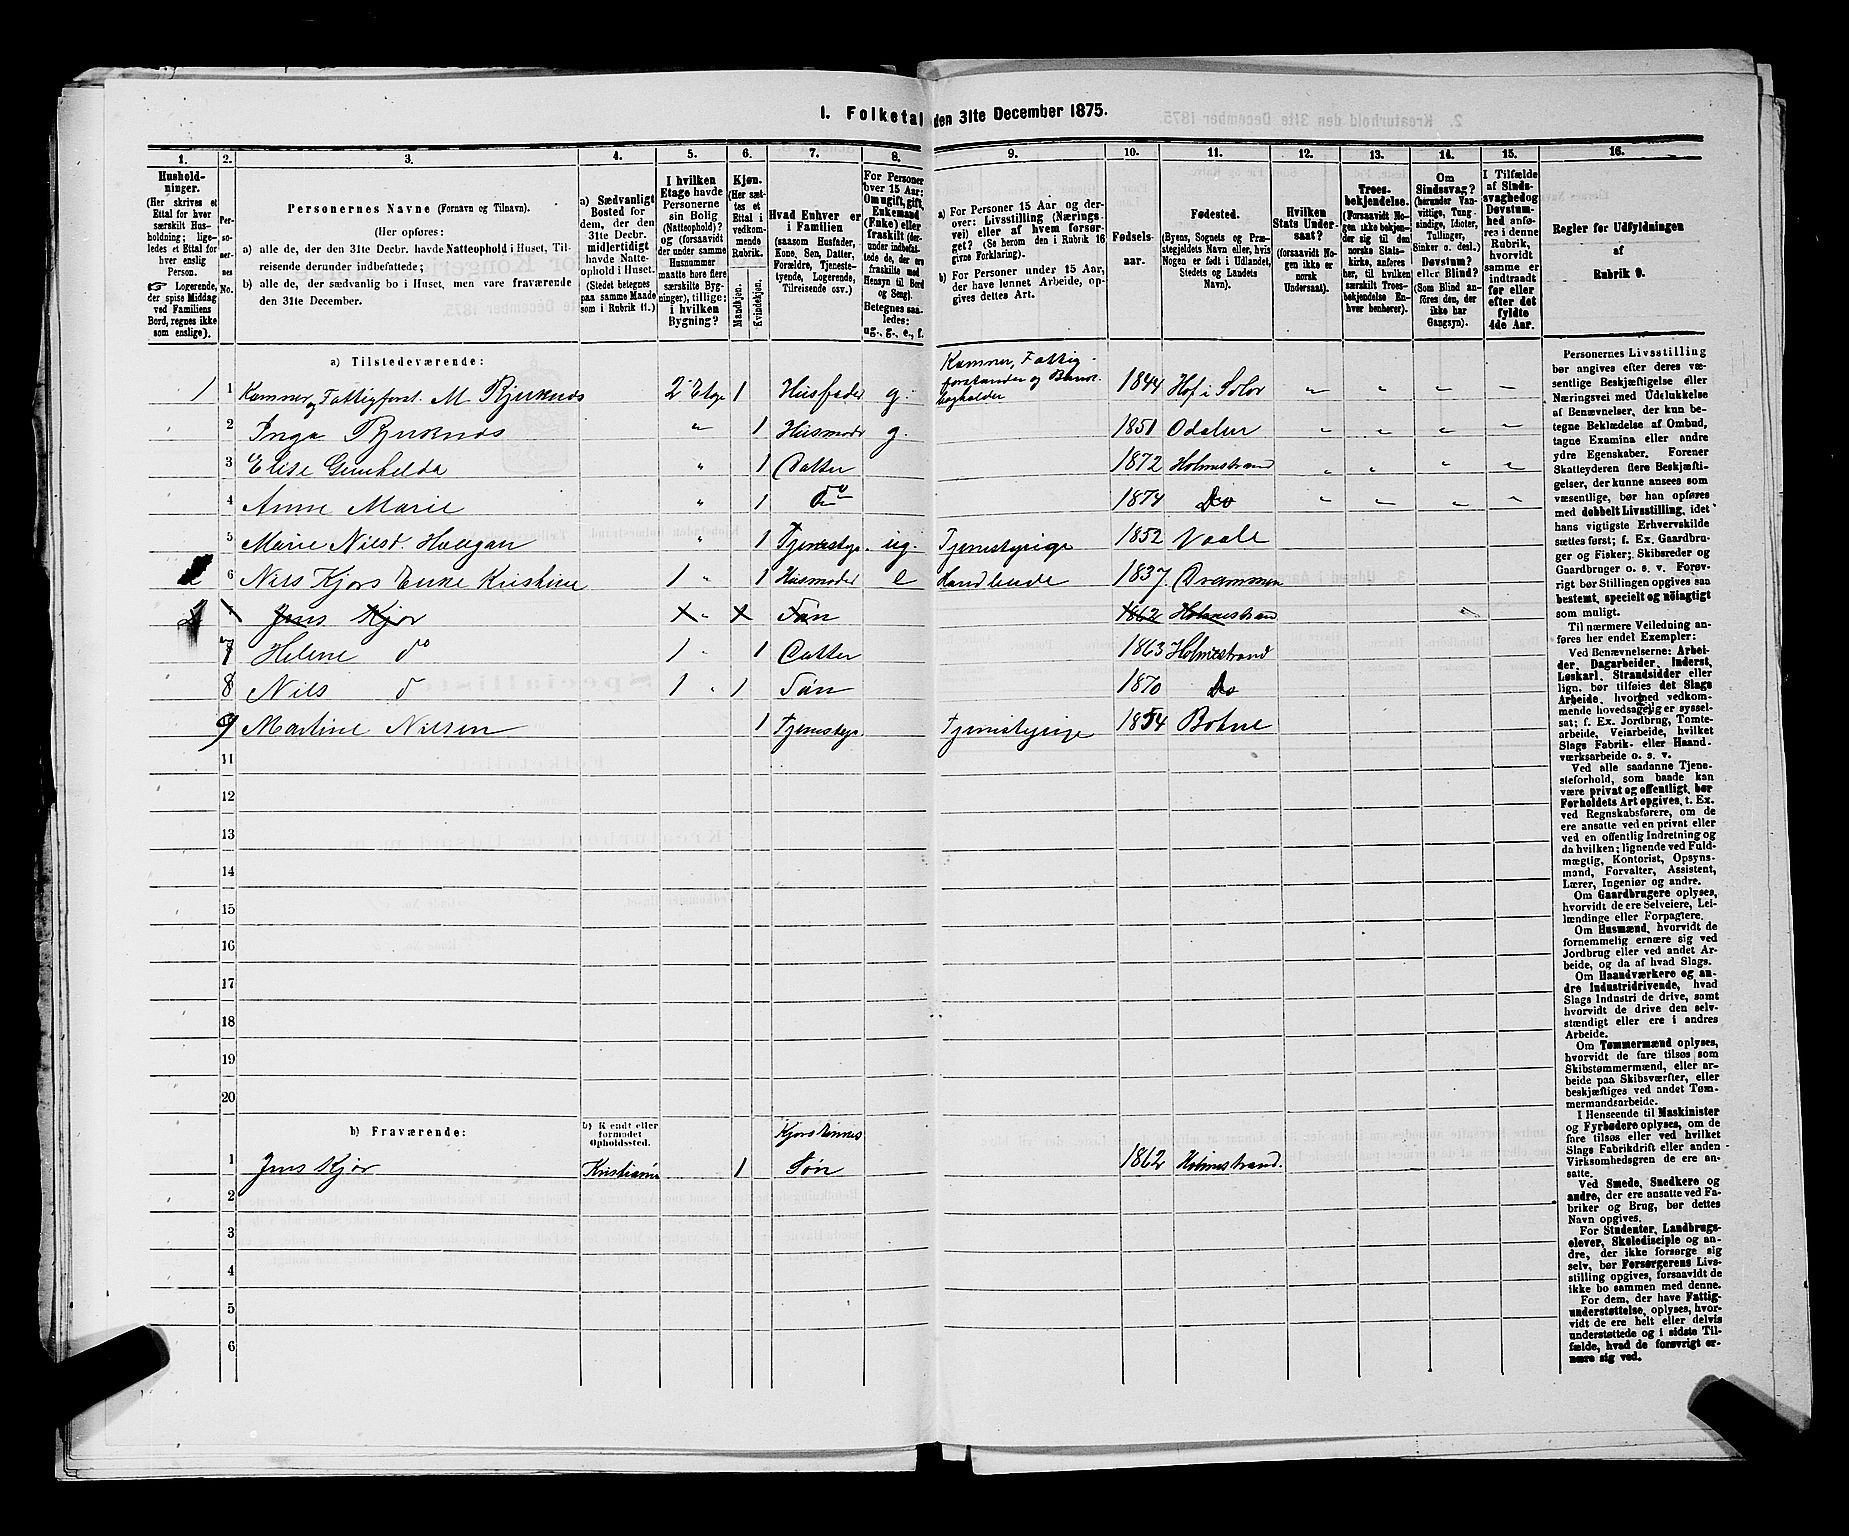 1. Folketal den 31te December 1875.
1.
2.
3.
4.
5.
6.
7.
8.
9.
10.
11.
12.
13.
14.
15.
16.
Hushold-
ninger.
(Her skrives et
Ettal for hver
særskilt Hus-
holdning; lige-
ledes et Ettal for
hver enslig
Person.
☞ Logerende,
der spise Middag
ved Familiens
Bord, regnes ikke
som enslige).
Per-
so-
ner-
nes
No.
Personernes Navne (Fornavn og Tilnavn).
(Her opføres:
a) alle de, der den 31te Decbr. havde Natteophold i Huset, Til-
reisende derunder indbefattede;
b) alle de, der sædvanlig bo i Huset, men vare fraværende
den 31te December.
a) Sædvanligt
Bosted for
dem, der den
31te Decbr.
midlertidigt
havde Natte-
ophold i Huset.
(Stedet betegnes
paa samme Maade
som i Rubrik 11.)
I hvilken
Etage havde
Personerne
sin Bolig
(Natteophold)?
og (forsaavidt
der under samme
Husnummer
maatte høre flere
særskilte Byg-
ninger), tillige:
i hvilken
Bygning?
Kjøn.
(Her sæt-
tes et
Ettal i
vedkom-
mende
Rubrik.
Mandkjøn.
Kvindekjøn.
Hvad Enhver er
i Familien
(saasom Husfader,
Kone, Søn, Datter,
Forældre, Tjeneste-
tyende, Logerende,
Tilreisende osv.)
For Personer
over 15 Aar:
Om ugift, gift,
Enkemand
(Enke) eller
fraskilt (der-
under indbefat-
tede de, der ere
fraskilte med
Hensyn til Bord
og Seng).
Betegnes saa-
ledes:
ug., g., e., f.
a) For Personer 15 Aar og der-
over: Livsstilling (Nærings-
vei) eller af hvem forsør-
get? (Se herom den i Rubrik 16
givne Forklaring).
b) For Personer under 15 Aar,
der have lønnet Arbeide, op-
gives dettes Art.
Fødsels-
aar.
Fødested.
(Byens, Sognets og Præ-
stegjeldets Navn eller, hvis
Nogen er født i Udlandet,
Stedets og Landets
Navn).
Hvilken
Stats Under-
saat?
(forsaavidt No-
gen ikke er
norsk
Undersaat).
Troes-
bekjendelse.
(Forsaavidt No-
gen ikke bekjen-
der sig til den
norske Stats-
kirke, anføres
her, til hvilken
særskilt Troes-
bekjendelse En-
hver henhører).
Om
Sindssvag?
(herunder Van-
vittige, Tung-
sindige, Idioter,
Tullinger,
Sinker o. desl.)
Døvstum?
eller Blind?
(Som Blind an-
føres den, der
ikke har
Gangsyn).
I Tilfælde
af Sinds-
svaghed og
Døvstum-
hed anfø-
res i denne
Rubrik,
hvorvidt
samme er
indtraadt
før eller
efter det
fyldte
4de Aar.
Regler for Udfyldningen
af
Rubrik 9.
a) Tilstedeværende:
1 1 Kæmner og Fattigforst. M. Bjerknes 2 Etage 1 Husfader g. Kæmner, Fattig-
forstander og
bogholder 1844 Hof i Solør " " " "
2 Inga Bjerknes " 1 Husmodr g. 1851 Odalen
3 Elise Gunhilda " 1 Datter 1872 Holmestrand " " " "
4 Anne Marie " 1 do 1874 Do " " " "
5 Marie Nilsd. Haugan " 1 Tjenestepg. ug. Tjenestepige 1852 Vaale
6 Nils Kjørs Enke Kristine 1 " 1 Husmoder e Handlende 1837 Drammen
Jens Kjør 1 " 1 Søn 1862 Holmestrand
7 Helene do 1 " 1 Datter 1863 Holmestrand
8 Nils do 1 " 1 Søn 1870 Do
9 Martine Nilsen 1 Tjenestepg Tjenestepige 1854 Botne
11
12
13
14
15
16
17
18
19
20
b) Fraværende:
b) Kjendt eller
formodet
Opholdssted.
Kjørs Ennes
1 Jens Kjør Kristiania 1 Søn 1862 Holmestrand.
2
3
4
5
6
Personernes Livsstilling
bør angives efter deres væ-
sentlige Beskjæftigelse eller
Næringsvei med Udelukkelse
af Benævnelser, der kun be-
tegne Beklædelse af Ombud,
tagne Examina eller andre
ydre Egenskaber. Forener
Skatteyderen flere Beskjæfti-
gelser, der kunne ansees som
væsentlige, bør han opføres
med dobbelt Livsstilling, idet
hans vigtigste Erhvervskilde
sættes først; f. Ex. Gaardbru-
ger og Fisker; Skibsreder og
Gaardbruger o. s. v. Forøv-
rigt bør Stillingen opgives saa
bestemt, specielt og nöiagtigt
som muligt.
Til nærmere Veiledning an-
føres her endel Exempler:
Ved Benævnelserne: Arbei-
der, Dagarbeider, Inderst,
Løskarl, Strandsidder eller
lign. bør tilføies det Slags
Arbeide, hvormed vedkom-
mende hovedsagelig er syssel-
sat; f. Ex. Jordbrug, Tomte-
arbeide, Veiarbeide, hvilket
Slags Fabrik- eller Haand-
værksarbeide o. s. v.
Ved alle saadanne Tjene-
steforhold, som baade kan
være privat og offentligt, bør
Forholdets Art opgives, t. Ex.
ved Regnskabsførere, om de
ere ansatte ved en privat eller
ved en offentlig Indretning og
da hvilken; lignende ved Fuld-
mægtig, Kontorist, Opsyns-
mand, Forvalter, Assistent,
Lærer, Ingeniør og andre.
Om Gaardbrugere oplyses,
hvorvidt de ere Selveiere, Lei-
lændinge eller Forpagtere.
Om Husmænd, hvorvidt de
fornemmelig ernære sig ved
Jordbrug eller ved andet Ar-
beide, og da af hvad Slags.
Om Haandværkere og an-
dre Industridrivende, hvad
Slags Industri de drive, samt
hvorvidt de drive den selv-
stændigt eller ere i andres
Arbeide.
Om Tømmermænd oplyses,
hvorvidt de fare tilsøs som
Skibstømmermænd, eller ar-
beide paa Skibsværfter, eller
beskjæftiges ved andet Tøm-
mermandsarbeide.
I Henseende til Maskinister
og Fyrbødere oplyses, om de
fare tilsøs eller ved hvilket
Slags Fabrikdrift eller anden
Virksomhedsgren de ere an-
satte.
Ved Smede, Snedkere og
andre, der ere ansatte ved Fa-
briker og Brug, bør dettes
Navn opgives.
For Studenter, Landbrugs-
elever, Skoledisciple og an-
dre, der ikke forsørge sig
selv, bør Forsørgerens Livs-
stilling opgives, forsaavidt de
ikke bo sammen med denne.
For dem, der have Fattig-
understøttelse, oplyses, hvor-
vidt de ere helt eller delvis
understøttede og i sidste Til-
fælde, hvad de forøvrigt er-
nære sig ved.